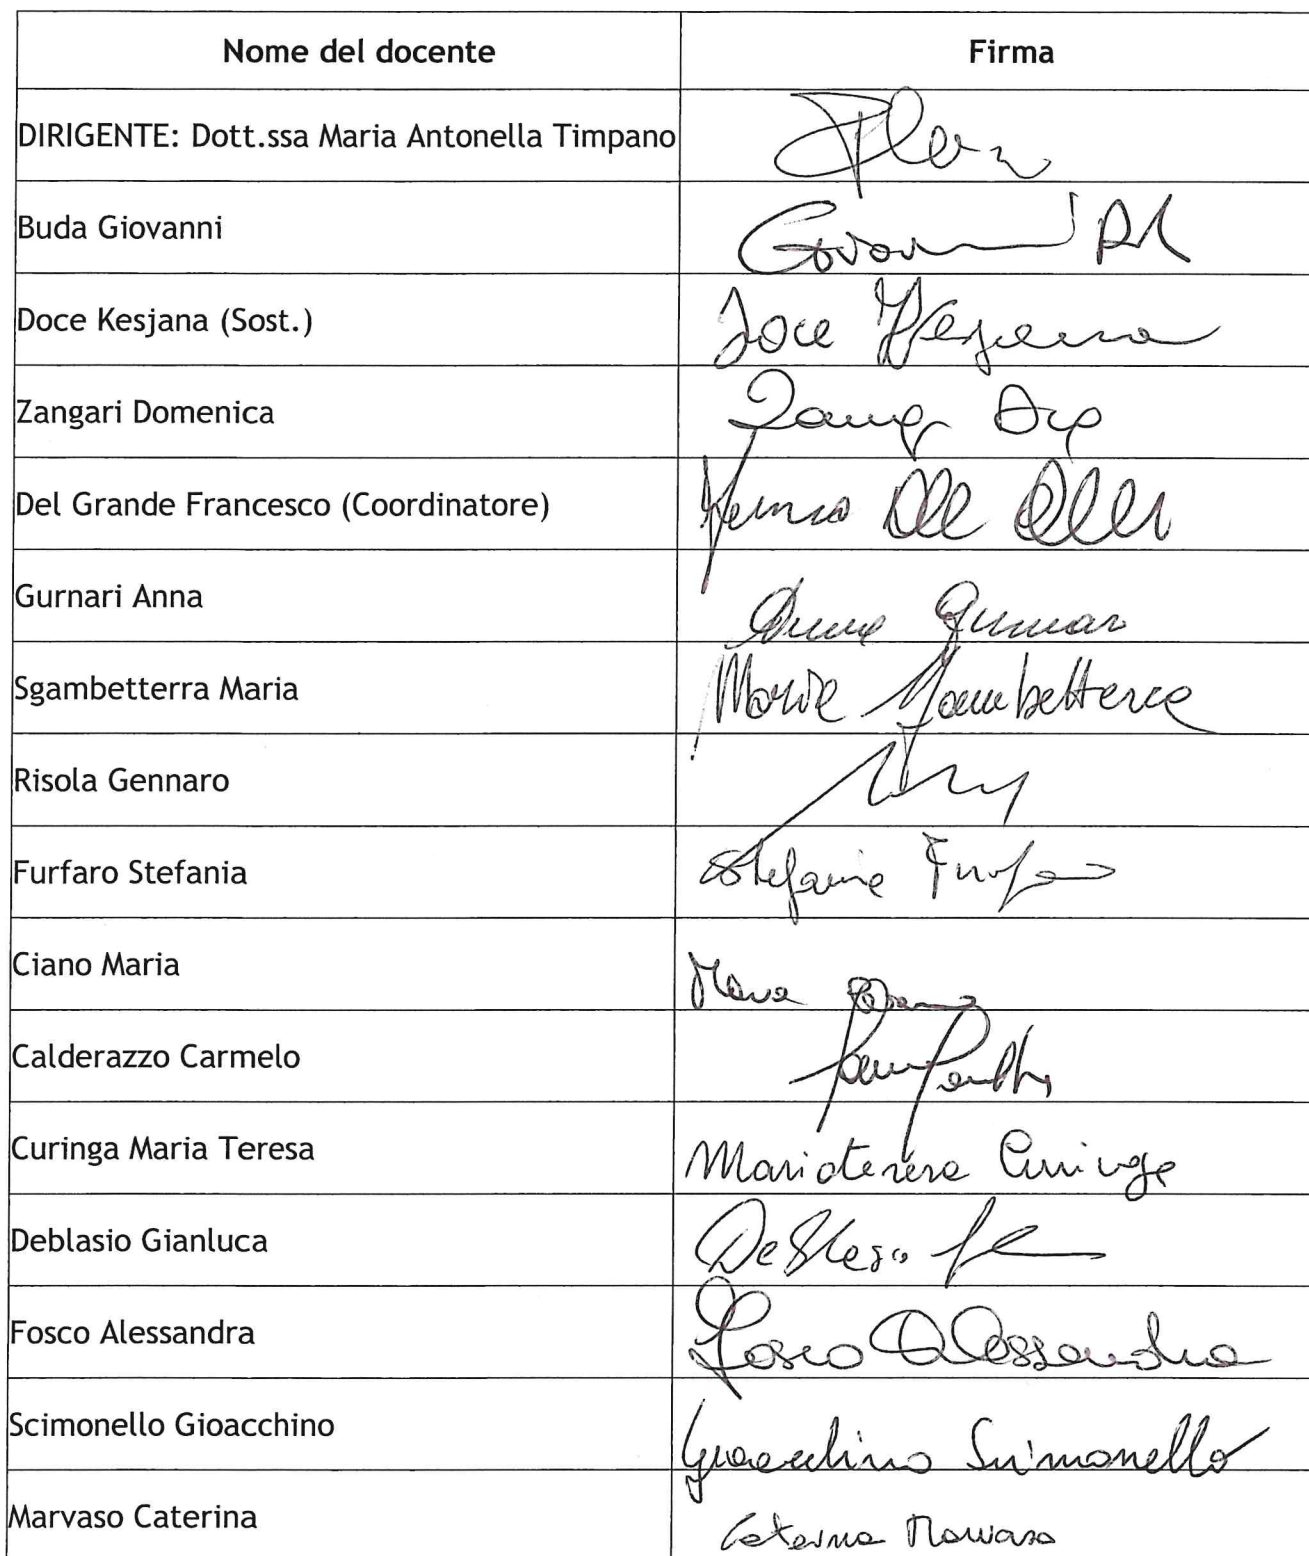 Nome del docente Firma
DIRIGENTE: Dott.ssa Maria Antonella Timpano
Buda Giovanni
Doce Kesjana (Sost.) Doce Kesjana
Zangari Domenica
Del Grande Francesco (Coordinatore)
Gurnari Anna Anna Gurnari
Sgambetterra Maria Maria Sgambetterra
Risola Gennaro
Furfaro Stefania Stefania Furfaro
Ciano Maria Maria Ciano
Calderazzo Carmelo
Curinga Maria Teresa Mariateresa Curinga
Deblasio Gianluca
Fosco Alessandra Fosco Alessandra
Scimonello Gioacchino Gioacchino Scimonello
Marvaso Caterina Caterina Marvaso